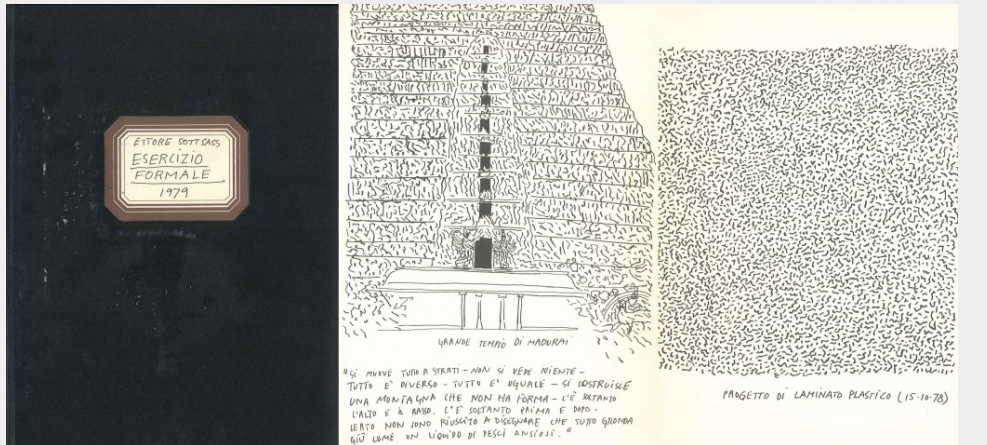 ETTORE SOTTSASS
ESERCIZIO
FORMALE
1979
GRANDE TEMPIO DI MADURAI
"SI MUOVE TUTTO A STRATI - NON SI VEDE NIENTE -
TUTTO E' DIVERSO - TUTTO E' UGUALE - SI COSTRUISCE
UNA MONTAGNA CHE NON HA FORMA - C'È SOLTANTO
L'ALTO E IL BASSO. C'E' SOLTANTO PRIMA E DOPO.
CERTO NON SONO RIUSCITO A DISEGNARE CHE TUTTO GRONDA
GIÙ COME UN LIQUIDO DI PESCI ANSIOSI."
PROGETTO DI LAMINATO PLASTICO (15.10.78)